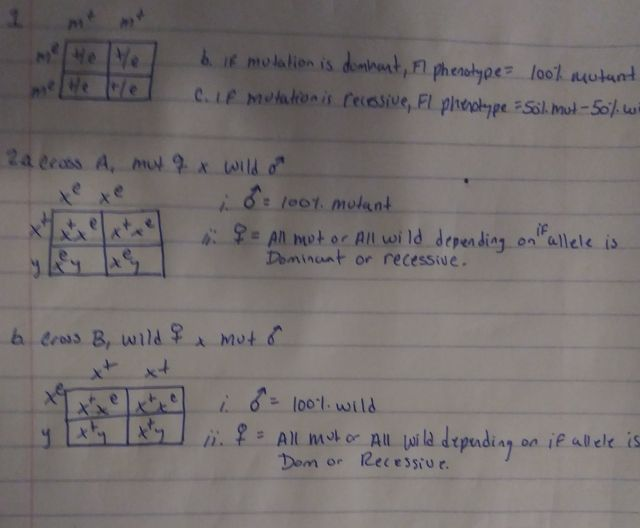 1 m⁺ m⁺
mᵉ +/e +/e
mᵉ +/e +/e
b. if mutation is dominant, F1 phenotype = 100% mutant
c. if mutation is recessive, F1 phenotype = 50% mut - 50% wi
2a cross A, mut ♀ x wild ♂
xᵉ xᵉ
x⁺ x⁺xᵉ x⁺xᵉ
y xᵉy xᵉy
i. ♂ = 100% mutant
ii. ♀ = All mut or All wild depending on if allele is
Dominant or recessive.
b cross B, wild ♀ x mut ♂
x⁺ x⁺
xᵉ x⁺xᵉ x⁺xᵉ
y x⁺y x⁺y
i. ♂ = 100% wild
ii. ♀ = All mut or All wild depending on if allele is
Dom or Recessive.